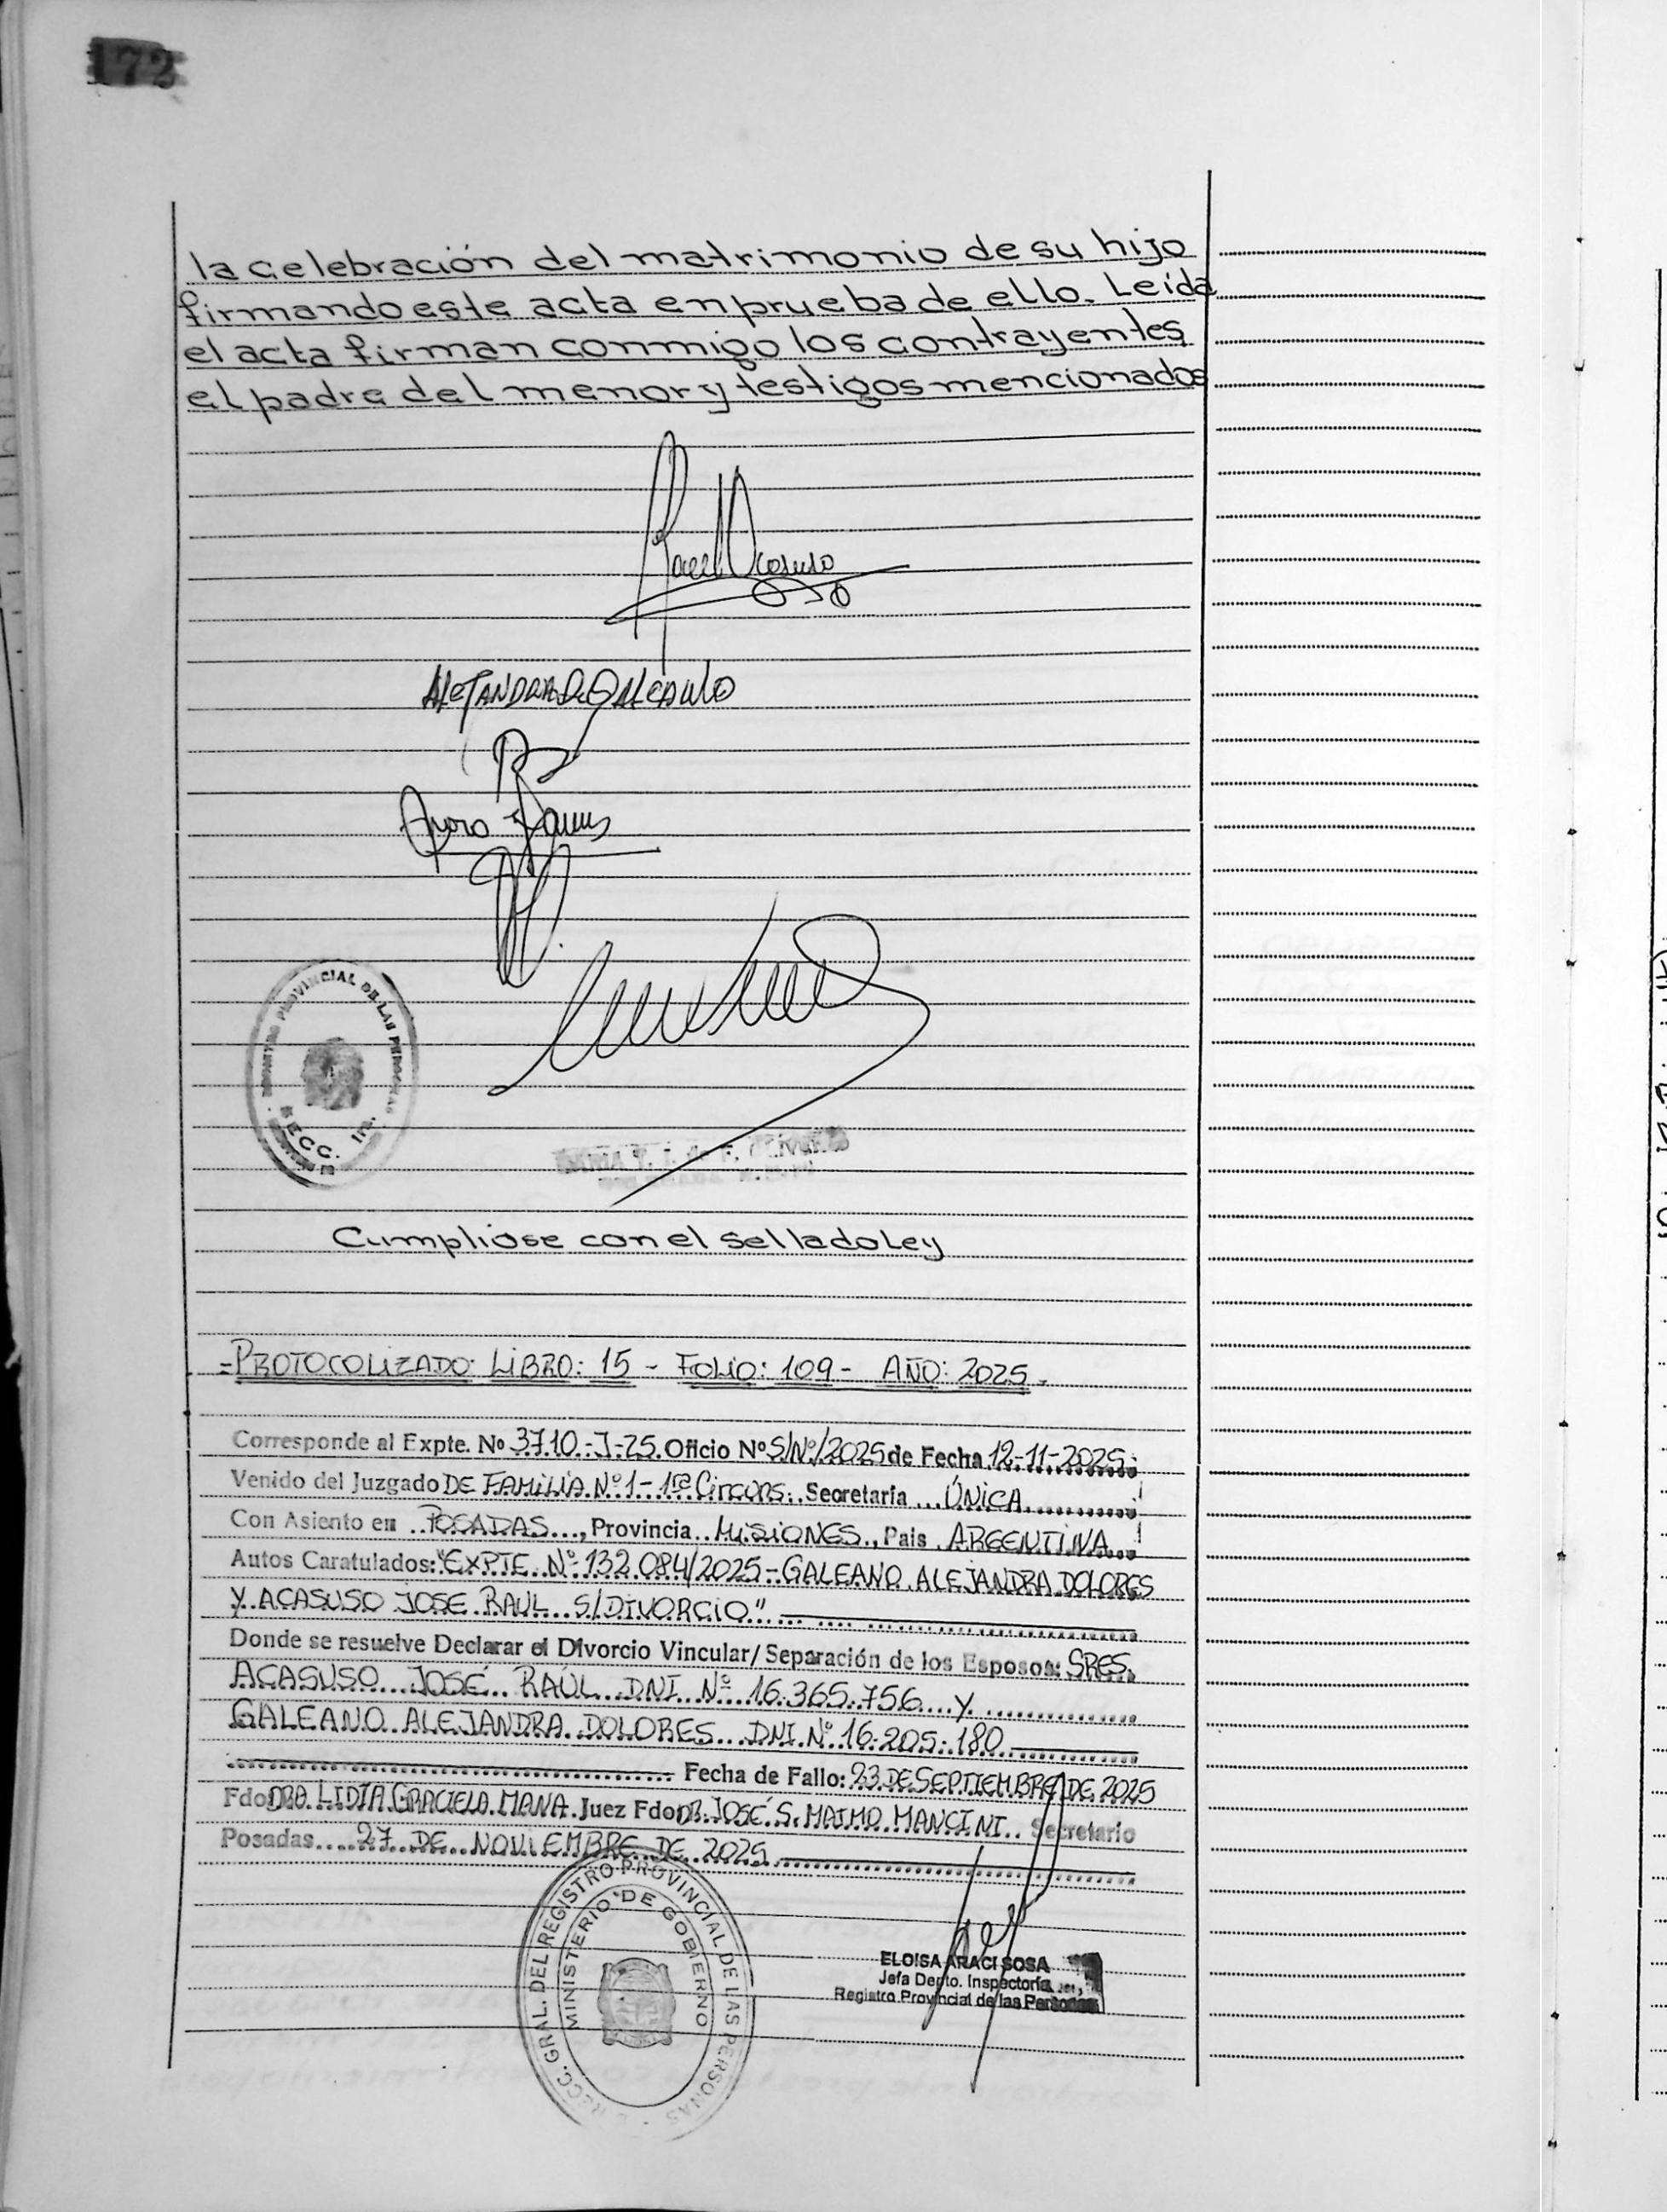 172
la celebración del matrimonio de su hijo
firmando este acta en prueba de ello. Leída
el acta firman conmigo los contrayentes
el padre del menor y testigos mencionados
Raul Acasuso
ALEJANDRA D. GALEANO
REGISTRO PROVINCIAL DE LAS PERSONAS
SECC. 1ra.
Cumpliose con el sellado Ley
=PROTOCOLIZADO: LIBRO: 15 - FOLIO: 109 - AÑO: 2025.
Corresponde al Expte. Nº 3710-J-25. Oficio Nº S/Nº/2025 de Fecha 12-11-2025
Venido del Juzgado DE FAMILIA Nº 1 - 1ra Circuns. Secretaría ÚNICA
Con Asiento en POSADAS, Provincia MISIONES, País ARGENTINA
Autos Caratulados: "EXPTE Nº 132.084/2025 - GALEANO ALEJANDRA DOLORES
Y ACASUSO JOSE RAUL S/DIVORCIO"
Donde se resuelve Declarar el Divorcio Vincular/ Separación de los Esposos: SRES.
ACASUSO JOSÉ RAÚL DNI Nº 16.365.756 Y
GALEANO ALEJANDRA DOLORES DNI Nº 16.205.180
Fecha de Fallo: 23 DE SEPTIEMBRE DE 2025
Fdo DRA. LIDIA GRACIELA MANA Juez Fdo DR. JOSÉ S. MAIMO MANCINI Secretario
Posadas 27 DE NOVIEMBRE DE 2025
DIRECC. GRAL. DEL REGISTRO PROVINCIAL DE LAS PERSONAS
MINISTERIO DE GOBIERNO
ELOISA ARACI SOSA
Jefa Depto. Inspectoría
Registro Provincial de las Personas